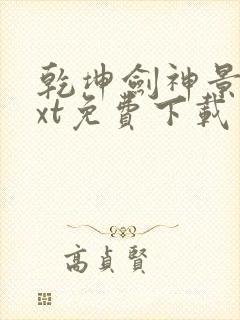 乾坤劍神景
xt免費下載
高貞賢